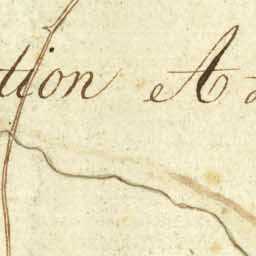 tion A